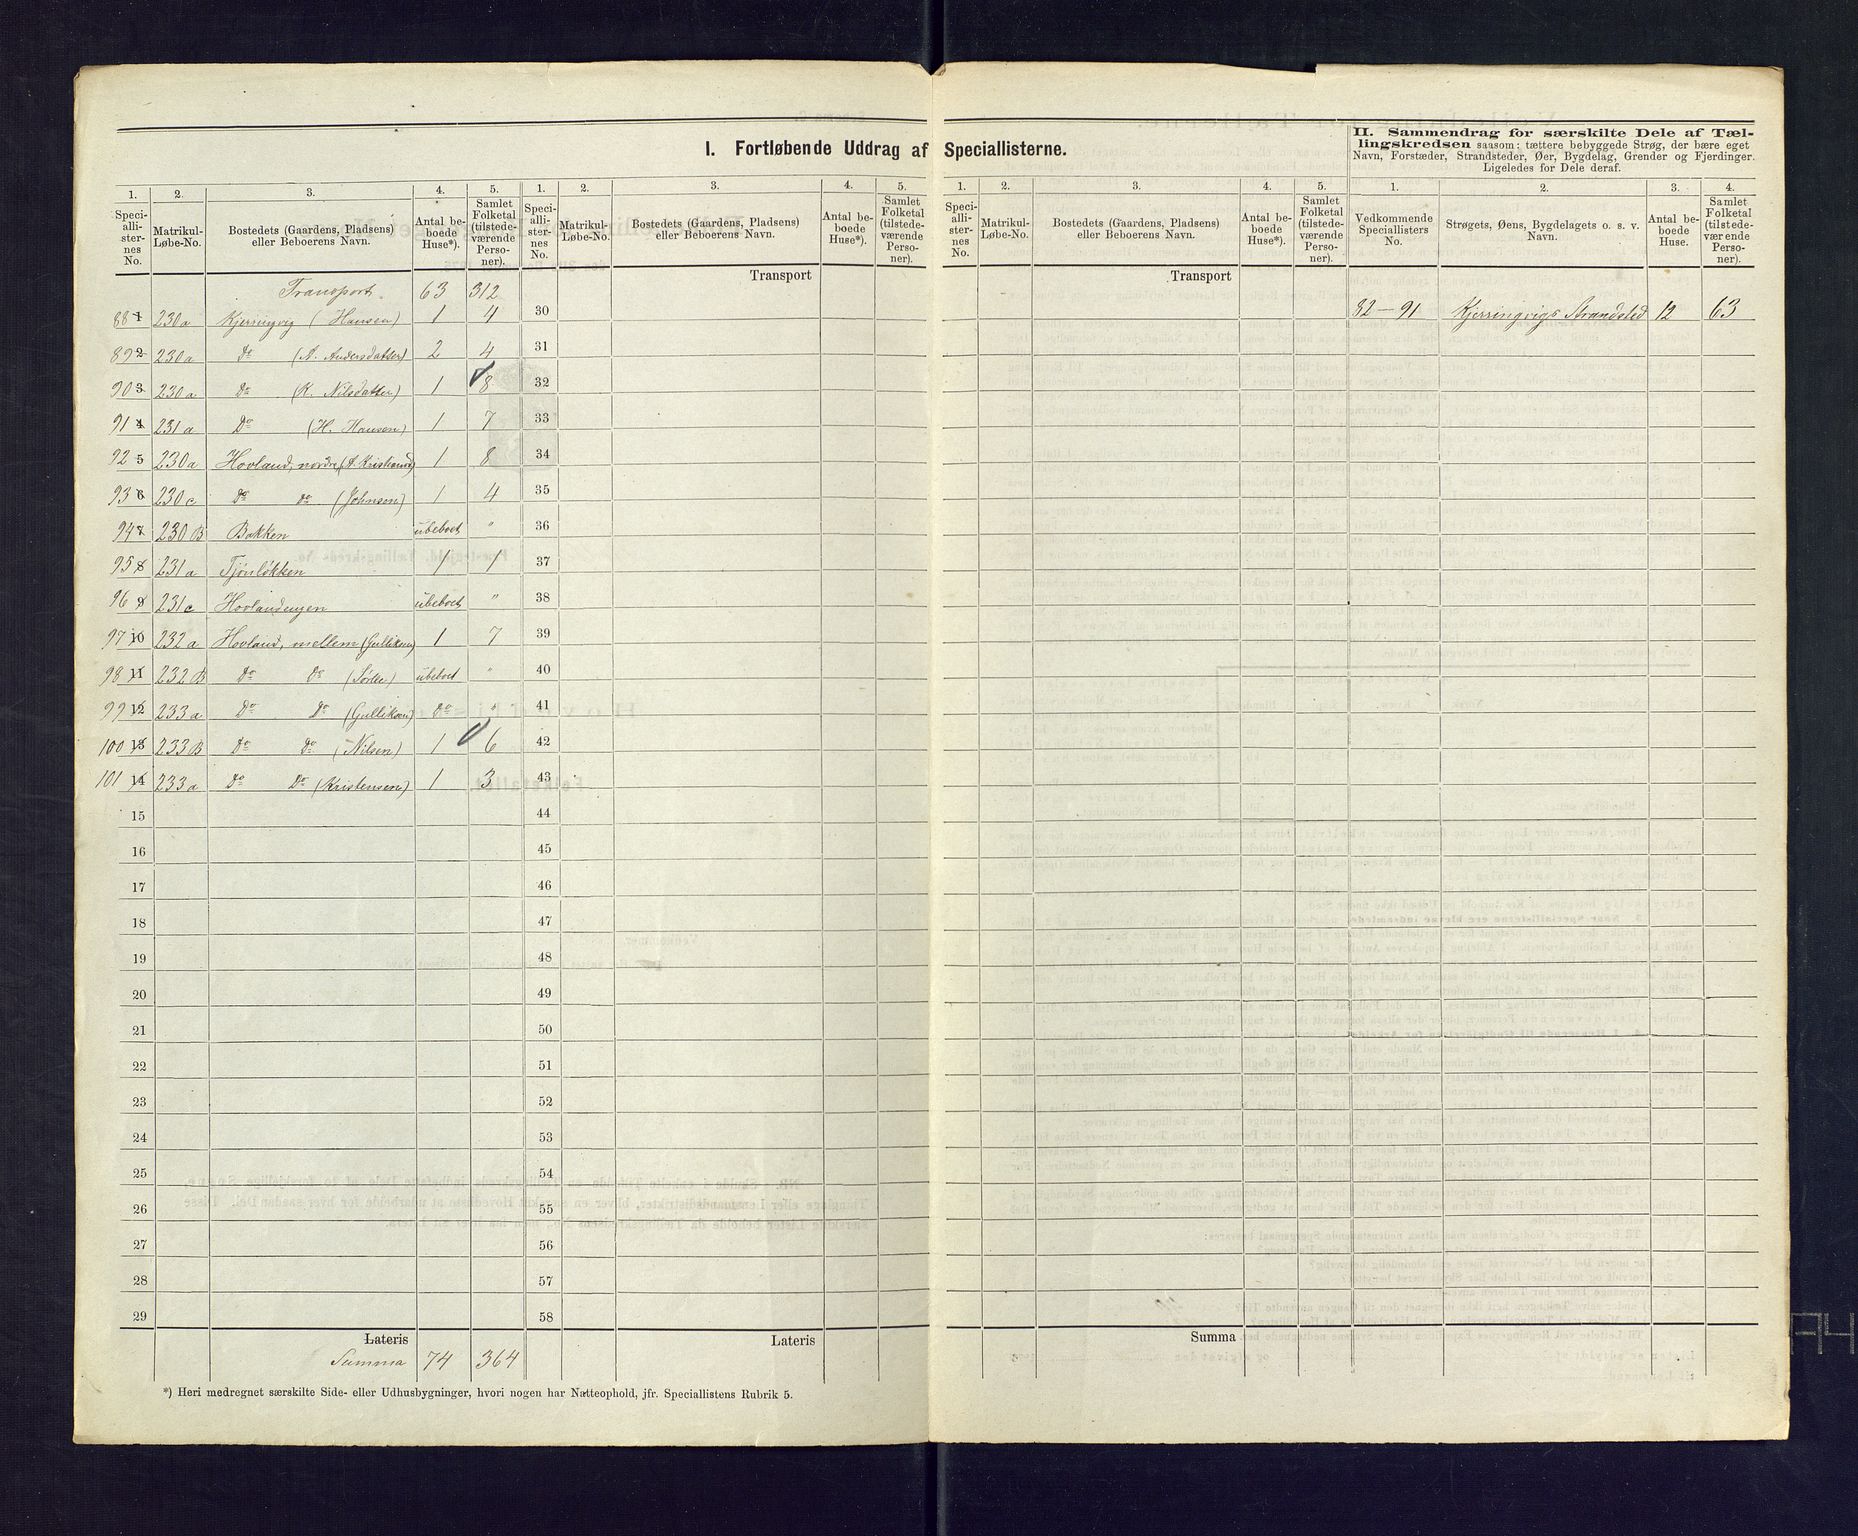 I. Fortløbende Uddrag af Speciallisterne.
II. Sammendrag for særskilte Dele af Tæl-
lingskredsen saasom: tættere bebyggede Strøg, der bære eget
Navn, Forstæder, Strandsteder, Øer, Bygdelag, Grender og Fjerdinger.
Ligeledes for Dele deraf.
1. 2. 3. 4. 5. 1. 2. 3. 4. 5. 1. 2. 3. 4. 5. 1. 2. 3. 4.
Speci-alli-ster-nes No. Matrikul-Løbe-No. Bostedets (Gaardens, Pladsens) eller Beboerens Navn. Antal be-boede Huse*). Samlet Folketal (tilstede-værende Perso-ner).
Speci-alli-ster-nes No. Matrikul-Løbe-No. Bostedets (Gaardens, Pladsens) eller Beboerens Navn. Antal be-boede Huse*). Samlet Folketal (tilstede-værende Perso-ner).
Speci-alli-ster-nes No. Matrikul-Løbe-No. Bostedets (Gaardens, Pladsens) eller Beboerens Navn. Antal be-boede Huse*). Samlet Folketal (tilstede-værende Perso-ner).
Vedkommende Speciallisters No. Strøgets, Øens, Bygdelagets o. s. v. Navn. Antal be-boede Huse. Samlet Folketal (tilstede-værende Perso-ner).
Transport 63 312 Transport Transport
88 1 230a Kjerringvig (Hansen) 1 4 30 82—91 Kjerringvigs Strandsted 12 63
89 2 230a Do (A. Andersdatter) 2 4 31
90 3 230a Do (K. Nilsdatter) 1 8 32
91 4 231a Do (H. Hansen) 1 7 33
92 5 230a Hovland, nordre (A. Kristians) 1 8 34
93 6 230c Do Do (Johnsen) 1 4 35
94 7 230B Bakken ubeboet " 36
95 8 231a Tjönløkken 1 1 37
96 9 231c Hovlandengen ubeboet " 38
97 10 232a Hovland, mellem (Gulliksen) 1 7 39
98 11 232B Do Do (Sørlie) ubeboet " 40
99 12 233a Do Do (Gulliksen) do " 41
100 13 233B Do Do (Nilsen) 1 6 42
101 14 233a Do Do (Kristensen) 1 3 43
15 44
16 45
17 46
18 47
19 48
20 49
21 50
22 51
23 52
24 53
25 54
26 55
27 56
28 57
29 58
Lateris Lateris Summa
Summa 74 364
*) Heri medregnet særskilte Side- eller Udhusbygninger, hvori nogen har Natteophold, jfr. Speciallistens Rubrik 5.